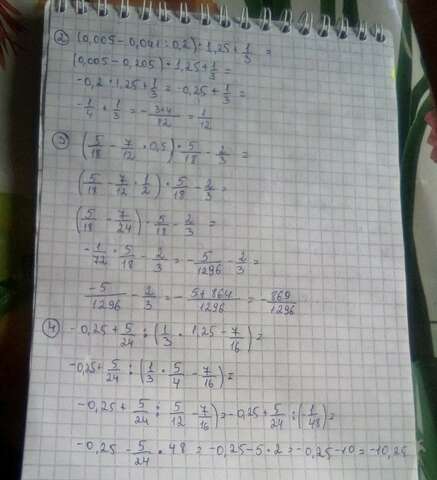 2) (0,005 - 0,041 : 0,2) · 1,25 + 1/3 =
(0,005 - 0,205) · 1,25 + 1/3 =
-0,2 · 1,25 + 1/3 = -0,25 + 1/3 =
-1/4 + 1/3 = -3+4/12 = 1/12
3) (5/18 - 7/12 · 0,5) · 5/18 - 2/3 =
(5/18 - 7/12 · 1/2) · 5/18 - 2/3 =
(5/18 - 7/24) · 5/18 - 2/3 =
-1/72 · 5/18 - 2/3 = -5/1296 - 2/3 =
-5/1296 - 2/3 = -5+864/1296 = -869/1296
4) -0,25 + 5/24 : (1/3 · 1,25 - 7/16) =
-0,25 + 5/24 : (1/3 · 5/4 - 7/16) =
-0,25 + 5/24 : 5/12 - 7/16) = -0,25 + 5/24 : (-1/48) =
-0,25 - 5/24 · 48 = -0,25 - 5 · 2 = -0,25 - 10 = -10,25